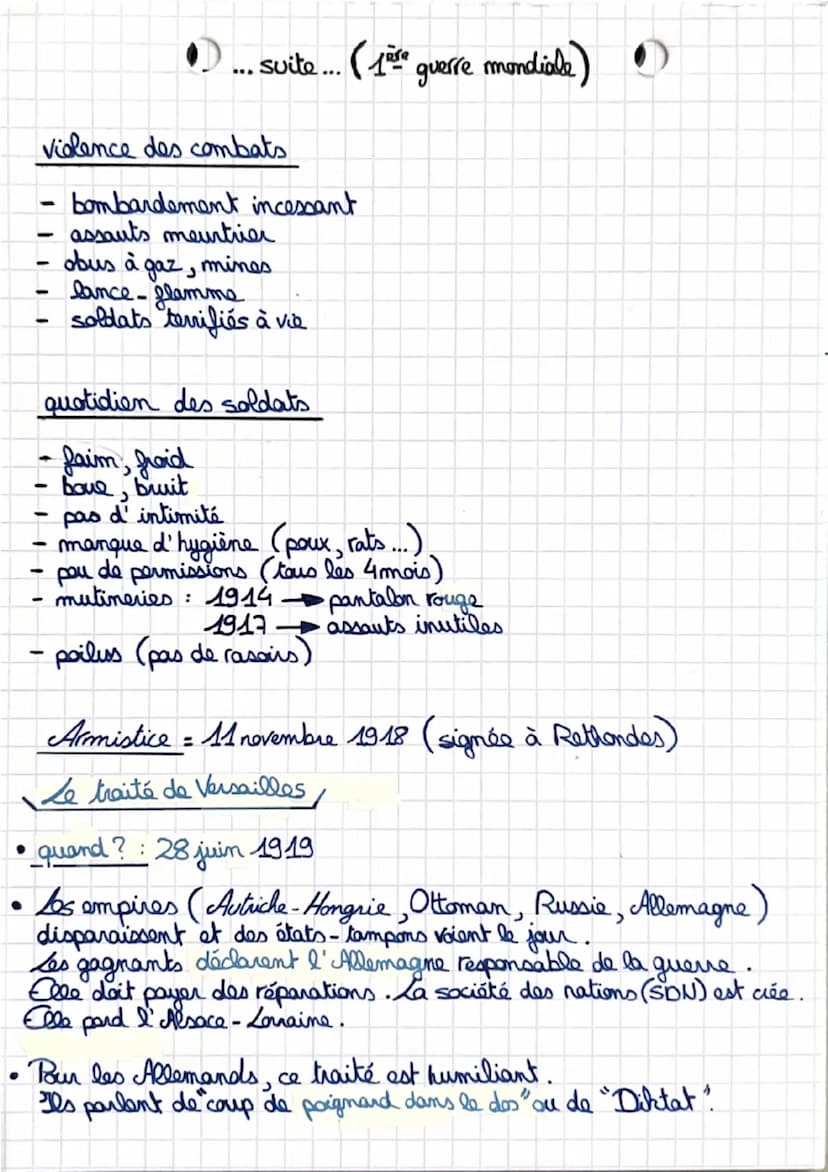 ... suite ... (1ère guerre mondiale)
violence des combats
- bombardement incessant
- assauts meurtrier
- obus à gaz, mines
- lance-flamme
- soldats terrifiés à vie
quotidien des soldats
- faim, froid
- boue, bruit
- pas d'intimité
- manque d'hygiène (poux, rats ...)
- peu de permissions (tous les 4 mois)
- mutineries : 1914 → pantalon rouge
1917 → assauts inutiles
- poilus (pas de rasoirs)
Armistice = 11 novembre 1918 (signée à Rethondes)
Le traité de Versailles
• quand ? : 28 juin 1919
• Les empires (Autriche-Hongrie, Ottoman, Russie, Allemagne)
disparaissent et des états-tampons voient le jour.
Les gagnants déclarent l'Allemagne responsable de la guerre.
Elle doit payer des réparations. La société des nations (SDN) est crée.
Elle perd l'Alsace-Lorraine.
• Pour les Allemands, ce traité est humiliant.
Ils parlent de "coup de poignard dans le dos" ou de "Diktat".